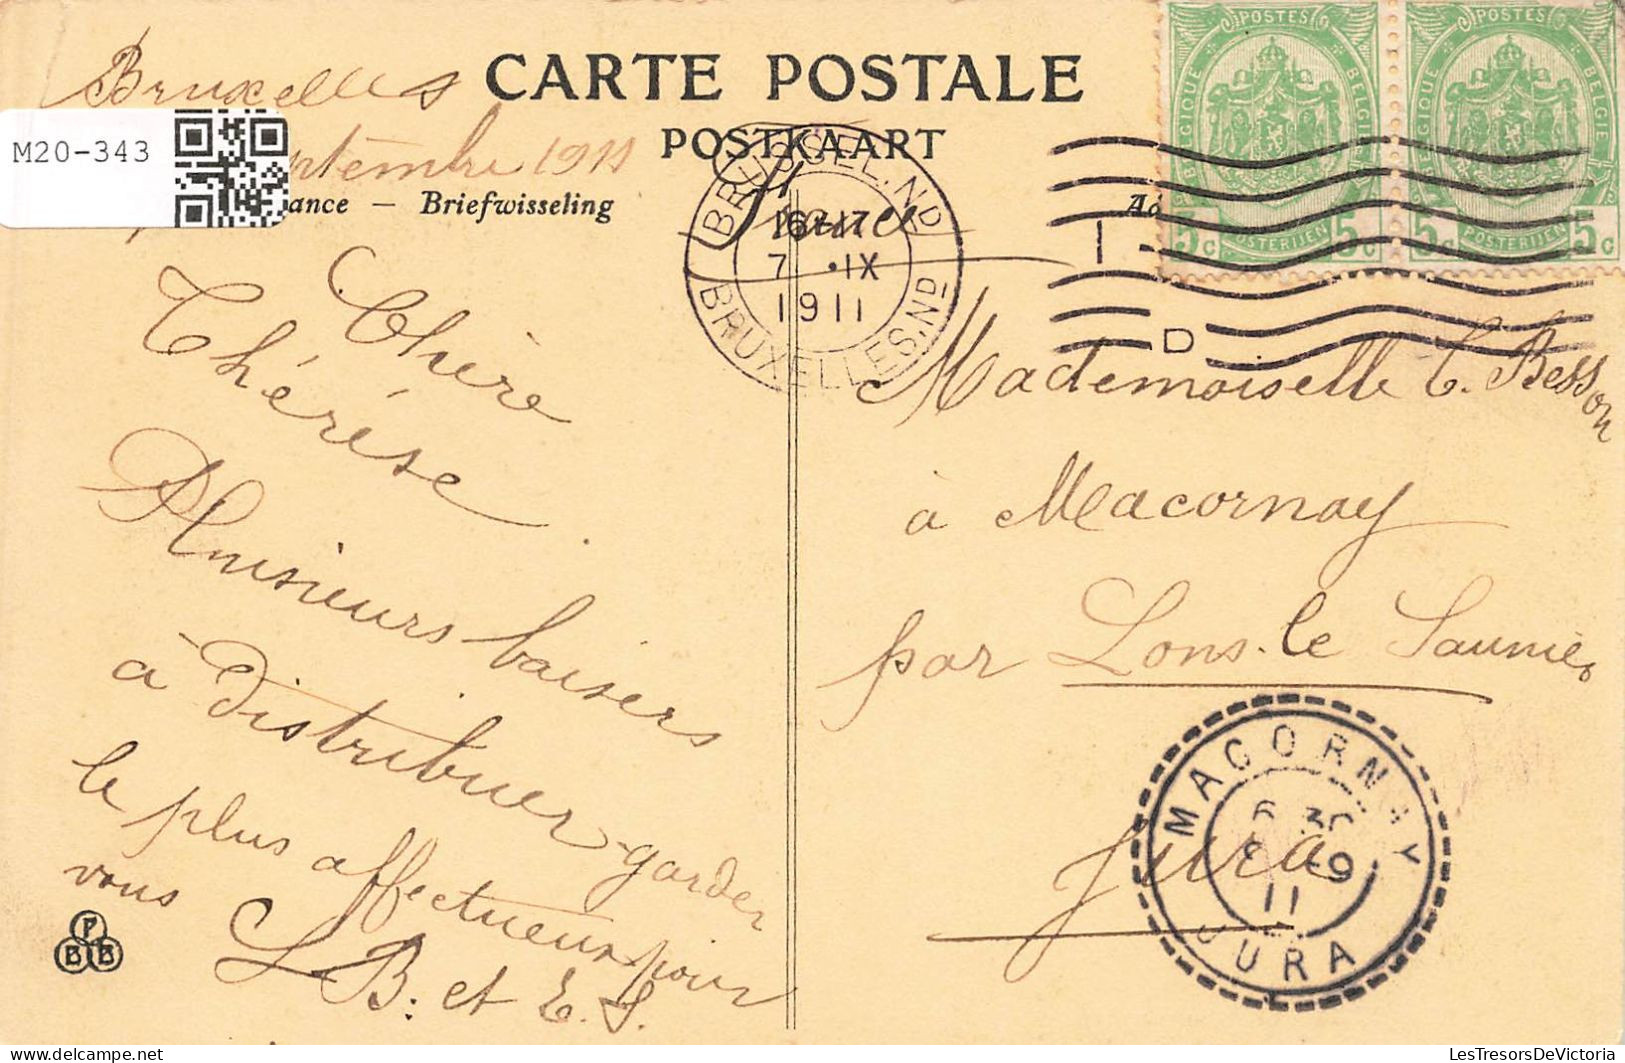 CARTE POSTALE
POSTKAART
Bruxelles
ptembre 1911
M20-343
ance – Briefwisseling
Chère
Thérèse
Plusieurs baisers
à distribuer garder
le plus affectueux pour
vous L. B. et E. S.
BPB
BRUSSEL.ND
16-17
7 •IX
1911
BRUXELLES.ND
1 D
France
Ad
POSTES
BELGIQUE BELGIE
5c POSTERIJEN 5c
POSTES
BELGIQUE BELGIE
5c POSTERIJEN 5c
Mademoiselle T. Besson
à Macornay
par Lons-le Saunier
Jura
MACORNAY
6 30
8 -9
11
JURA
LesTresorsDeVictoria